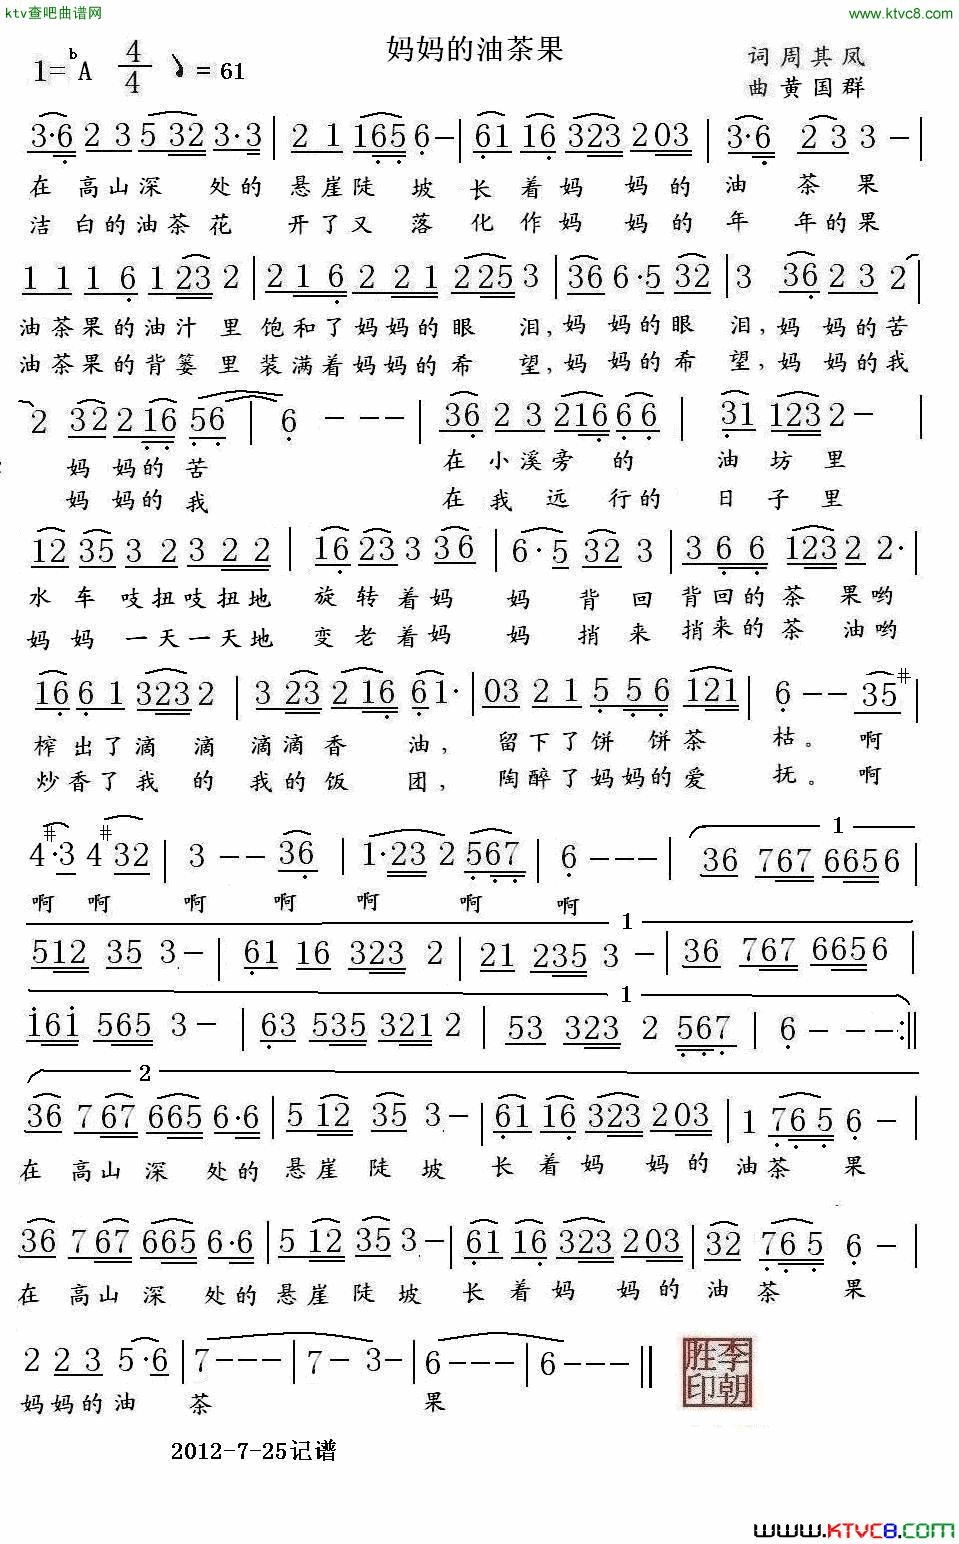 ktv查吧曲谱网
www.ktvc8.com
妈妈的油茶果
1=ᵇA 4/4 ♪=61
词周其凤
曲黄国群
3·6 2 3 5 32 3·3 | 2 1 165 6- | 61 16 323 203 | 3·6 23 3 - |
在高山深 处的悬崖陡 坡 长着妈 妈的 油 茶 果
洁白的油茶花 开了又 落 化作妈 妈的年 年的果
1 1 1 6 1 23 2 | 2 1 6 2 2 1 225 3 | 36 6·5 32 | 3 36 2 3 2 |
油茶果的油汁 里饱和了妈妈的眼 泪,妈 妈的眼 泪,妈 妈的苦
油茶果的背篓 里装满着妈妈的希 望,妈 妈的希 望,妈 妈的我
2 32 2 16 56 | 6 - - - | 36 2 3 216 66 | 31 123 2 - |
妈 妈的苦 在小溪旁 的 油 坊 里
妈 妈的我 在我 远 行的 日 子 里
12 35 3 2 3 2 2 | 16 23 3 36 | 6·5 32 3 | 3 6 6 123 2 2· |
水 车 吱扭吱扭地 旋 转着妈 妈 背 回 背回的茶 果哟
妈 妈 一天一天地 变 老着妈 妈 捎 来 捎来的茶 油哟
16 6 1 323 2 | 3 23 2 16 6 1· | 03 2 1 5 5 6 121 | 6 - - 35 |
榨出了滴 滴 滴滴香 油, 留下了饼 饼茶 枯。 啊
炒香了我 的 我的饭 团, 陶醉了妈妈的爱 抚。 啊
#4·3 #4 32 | 3 - - 36 | 1·23 2 567 | 6 - - - | 36 767 6656 |
啊 啊 啊 啊 啊 啊 啊
1
512 35 3 - | 61 16 323 2 | 21 235 3 - | 36 767 6656 |
1
161 565 3 - | 63 535 321 2 | 53 323 2 567 | 6 - - - :||
1
2
36 7 67 665 6·6 | 5 12 35 3 - | 61 16 323 203 | 1 765 6 - |
在高山深 处的悬崖陡 坡 长着妈 妈的 油茶 果
36 7 67 665 6·6 | 5 12 35 3 - | 61 16 323 203 | 32 765 6 - |
在 高山深 处的悬崖陡 坡 长着妈 妈的 油 茶 果
2 2 3 5·6 | 7 - - - | 7 - 3 - | 6 - - - | 6 - - - ||
妈妈的油 茶 果
李朝胜印
2012-7-25记谱
www.KTVC8.COM